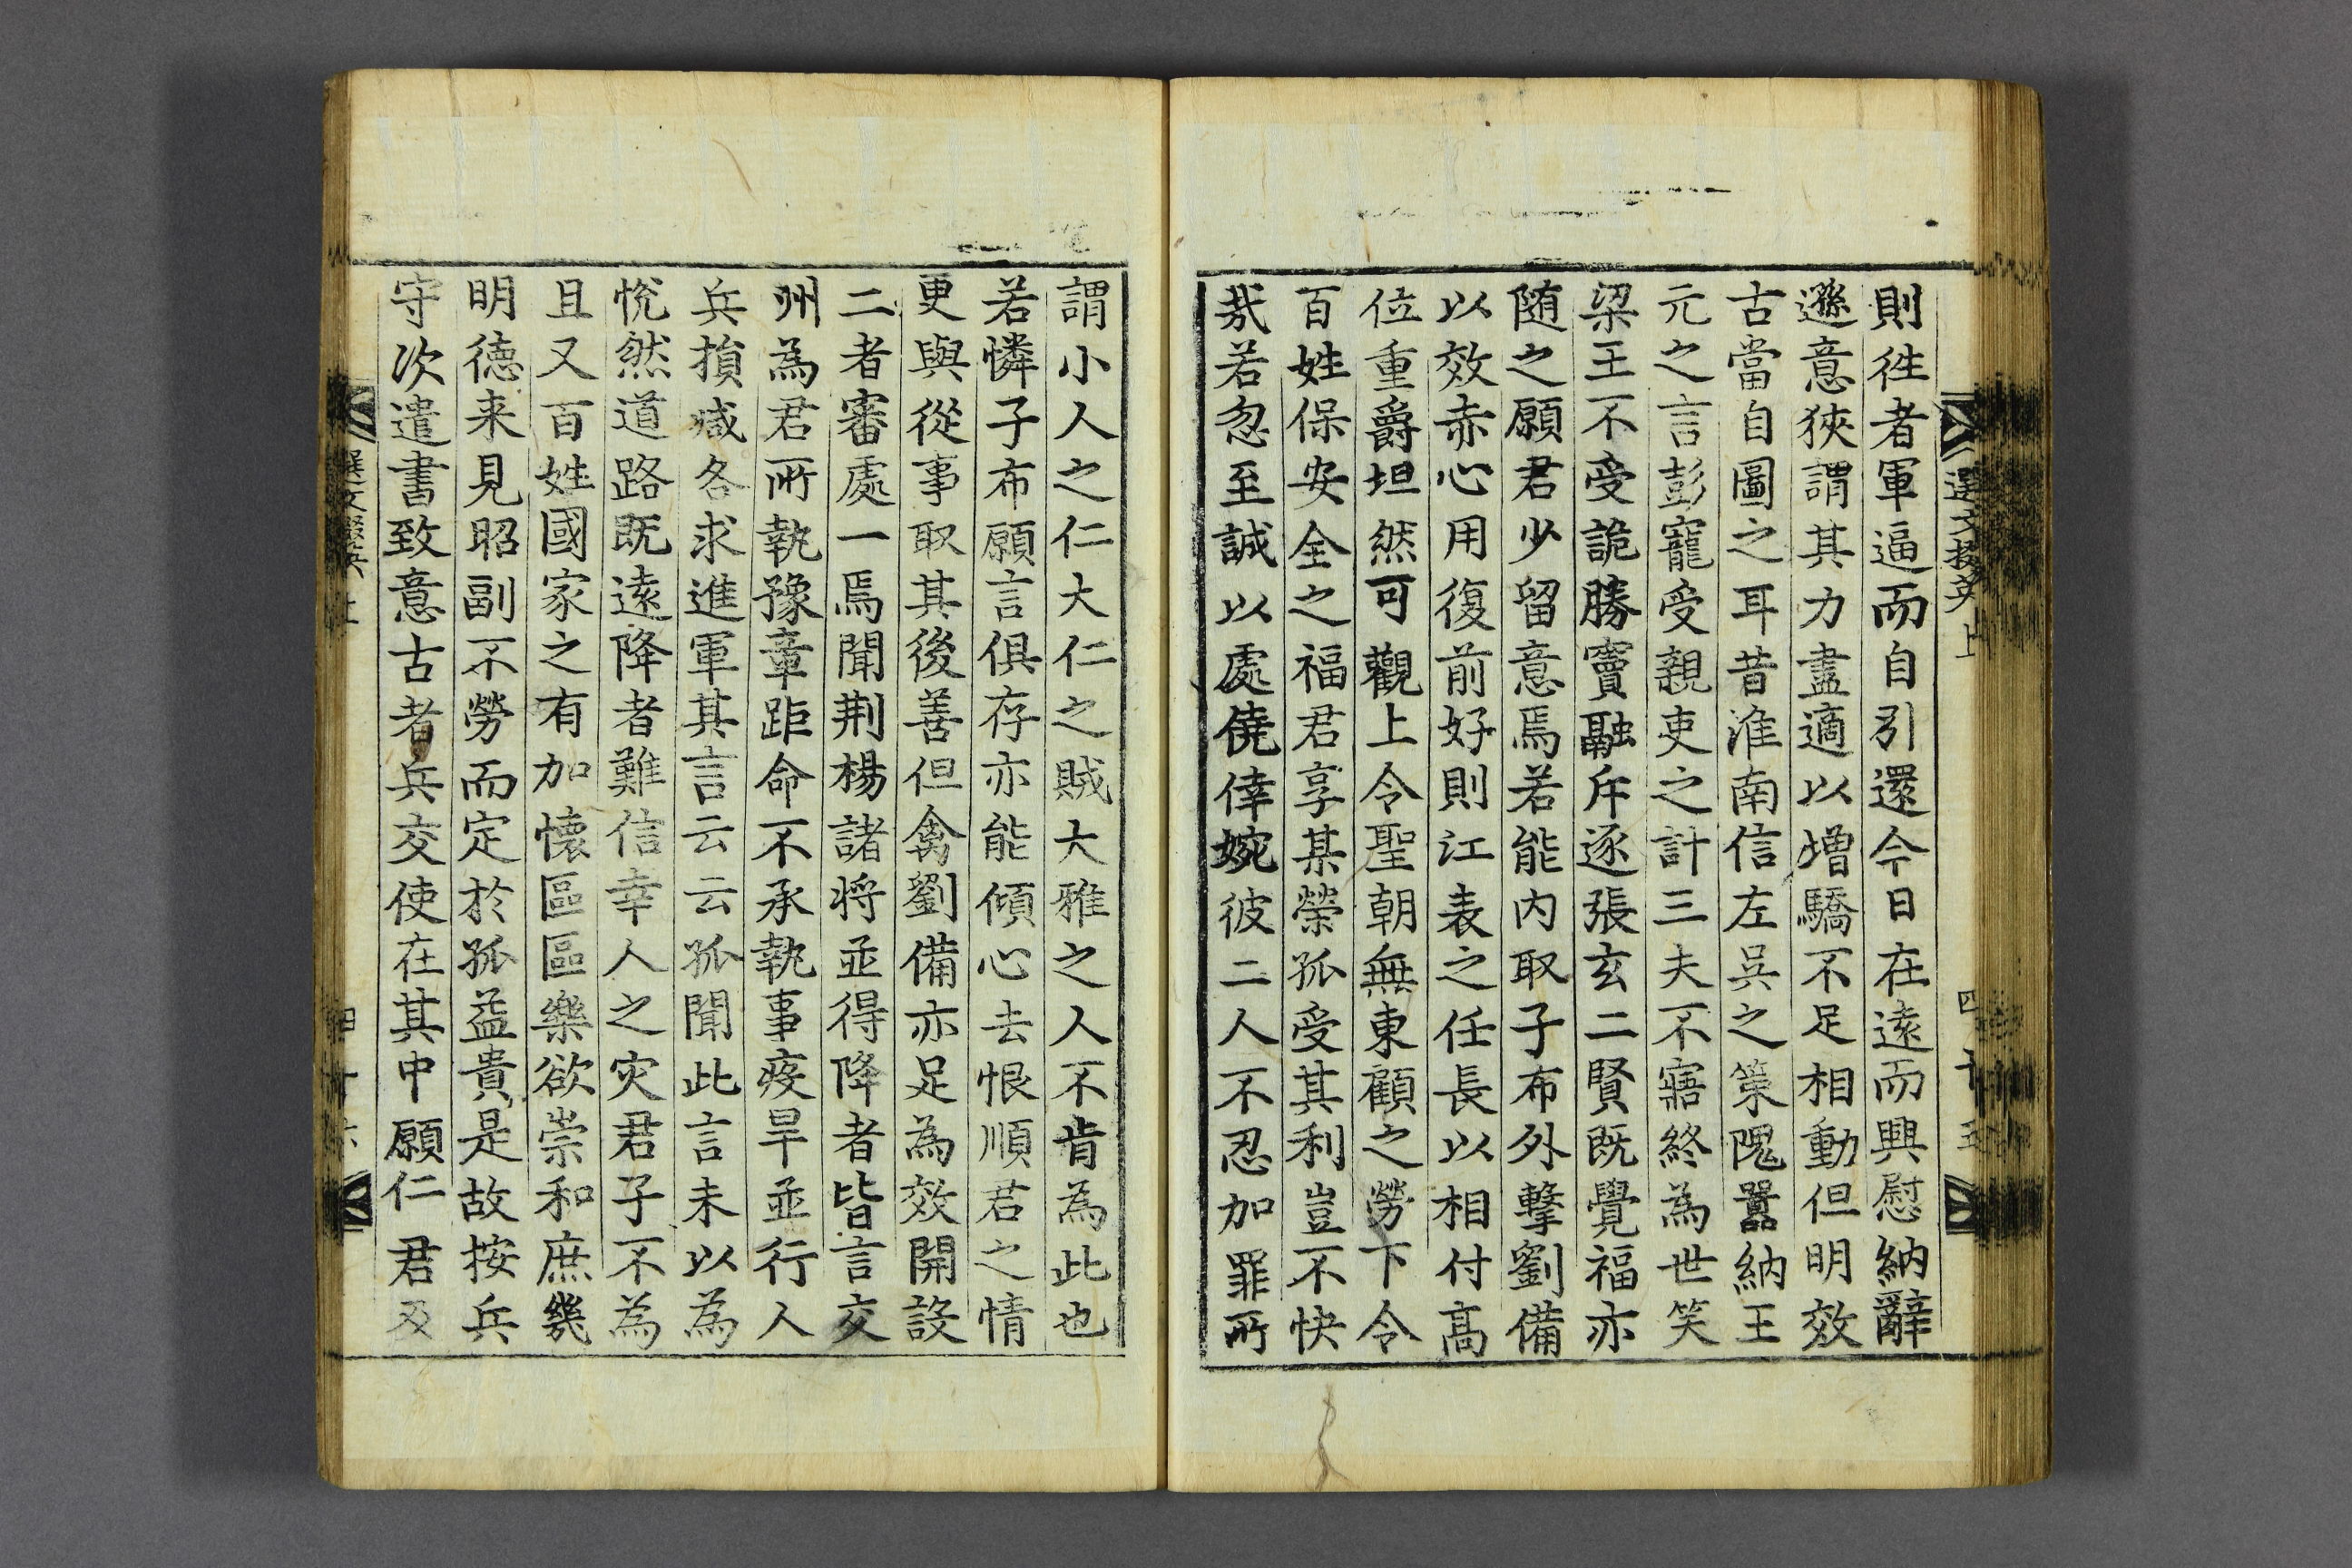 則徃者軍逼而自引還今日在遠而興慰納辭
遜意狹謂其力盡適以增驕不足相動但明效
古當自圖之耳昔淮南信左吳之䇿隗囂納王
元之言彭寵受親吏之計三夫不寤終為世笑
梁王不受詭勝竇融斥逐張玄二賢既覺福亦
随之願君少留意焉若能內取子布外擊劉備
以效赤心用復前好則江表之任長以相付高
位重爵坦然可觀上令聖朝無東顧之勞下令
百姓保安全之福君享其榮孤受其利豈不快
㢤若忽至誠以處僥倖婉彼二人不忍加罪所
選文掇英上
四十五
謂小人之仁大仁之賊大雅之人不肯為此也
若憐子布願言俱存亦能傾心去恨順君之情
更與從事取其後善但禽劉備亦足為效開設
二者審處一焉聞荆楊諸將並得降者皆言交
州為君所執豫章距命不承執事疫旱並行人
兵損减各求進軍其言云云孤聞此言未以為
悅然道路既遠降者難信幸人之灾君子不為
且又百姓國家之有加懐區區樂欲崇和庶幾
明徳来見昭副不勞而定於孤益貴是故按兵
守次遣書致意古者兵交使在其中願仁君及
選文掇英上
四十六